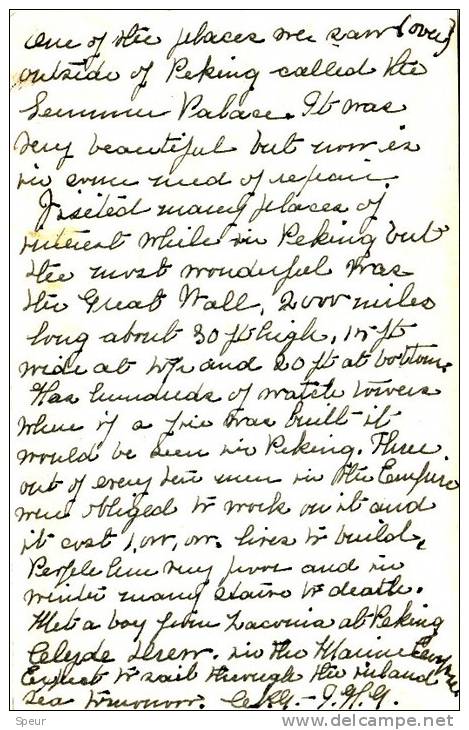 One of the places we saw (over)
outside of Peking called the
Summer Palace. It was
very beautiful but now is
in some need of repair.
Visited many places of
interest while in Peking but
the most wonderful was
the Great Wall, 2000 miles
long about 30 ft high, 15 ft
wide at top and 20 ft at bottom.
Has hundreds of watch towers
where if a fire was built it
would be seen in Peking. Three
out of every ten men in the Empire
were obliged to work on it and
it cost 1,000,000. lives to build.
People here very poor and in
winter many starve to death.
Met a boy from Laconia at Peking
Clyde Drew. in the Marine
Expect to sail through the inland
Sea tomorrow.
Speur
www.delcampe.net